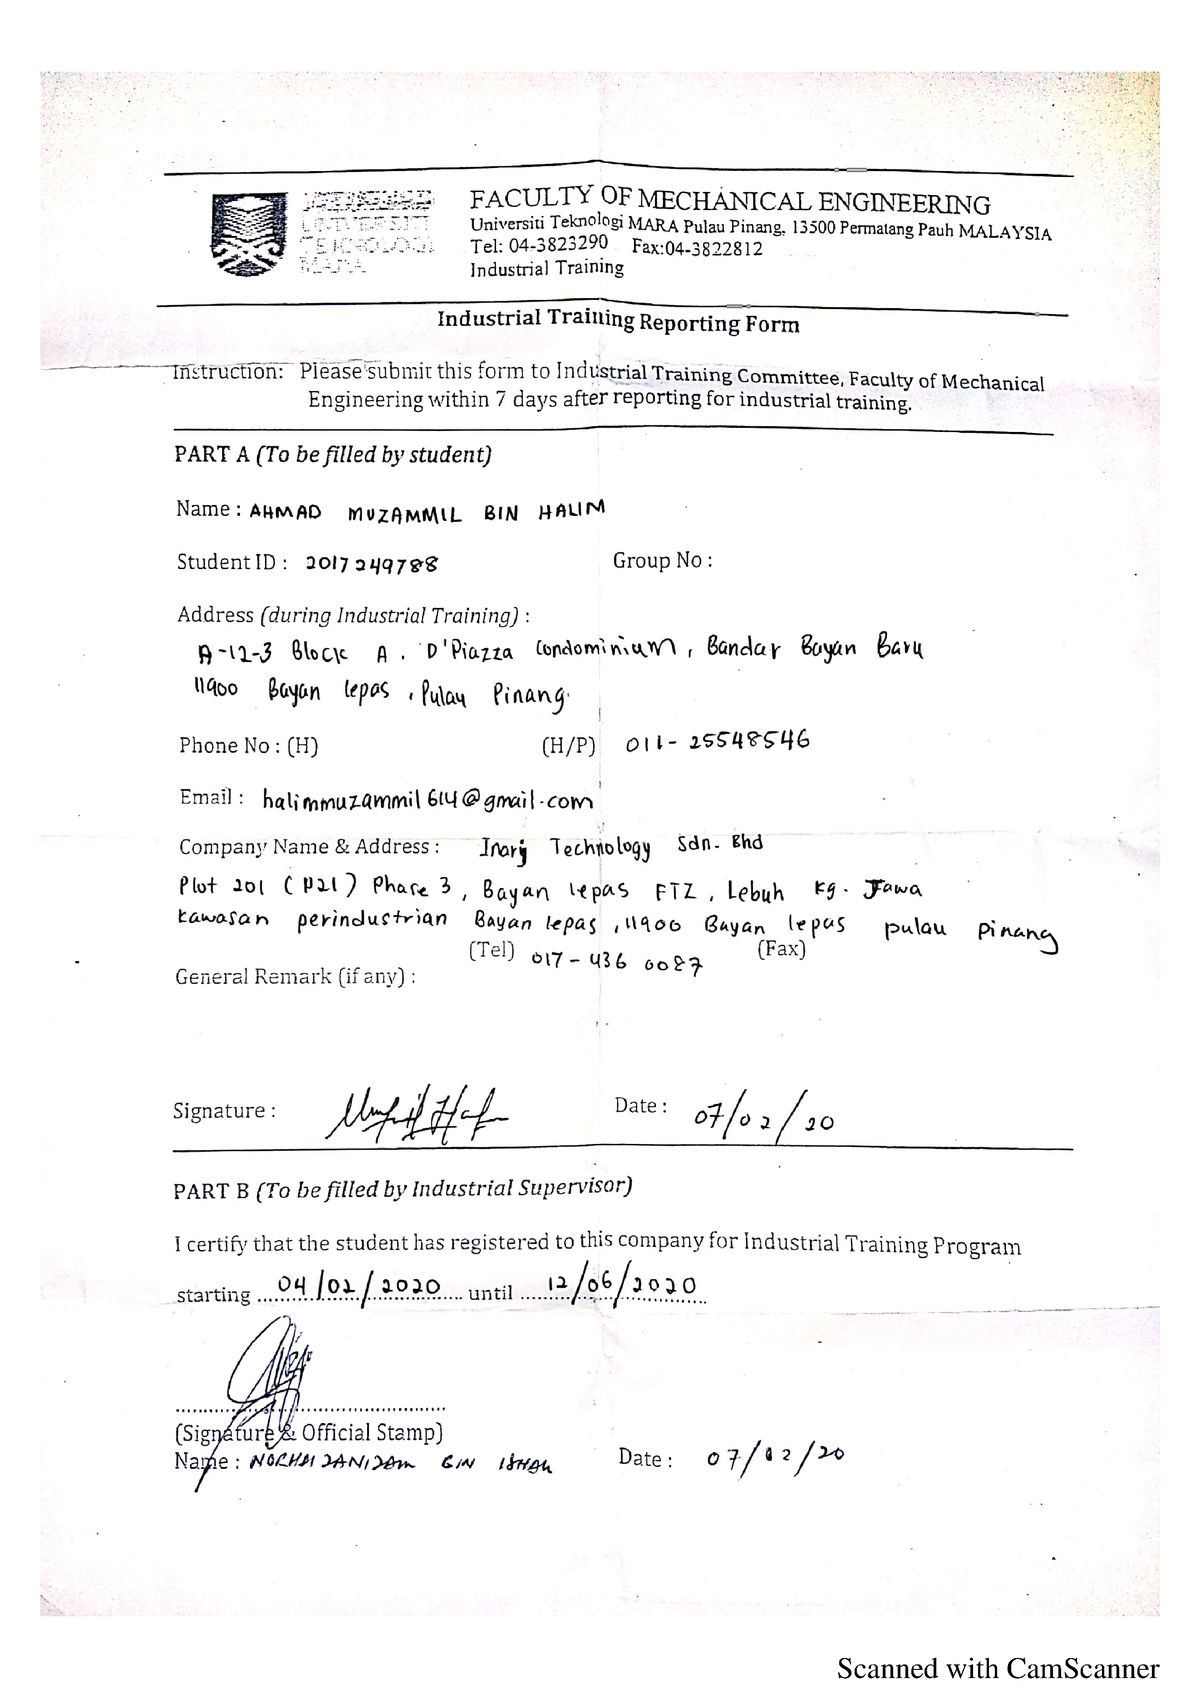 UNIVERSITI
TEKNOLOGI
MARA
FACULTY OF MECHANICAL ENGINEERING
Universiti Teknologi MARA Pulau Pinang, 13500 Permatang Pauh MALAYSIA
Tel: 04-3823290 Fax:04-3822812
Industrial Training
Industrial Training Reporting Form
Instruction: Please submit this form to Industrial Training Committee, Faculty of Mechanical
Engineering within 7 days after reporting for industrial training.
PART A (To be filled by student)
Name : AHMAD MUZAMMIL BIN HALIM
Student ID : 2017249788 Group No :
Address (during Industrial Training) :
A-12-3 Block A. D'Piazza Condominium, Bandar Bayan Baru
11900 Bayan lepas, Pulau Pinang.
Phone No : (H) (H/P) 011-25548546
Email : halimmuzammil614@gmail.com
Company Name & Address : Inari Technology Sdn. Bhd
Plot 201 (P21) Phase 3, Bayan lepas FTZ, Lebuh Kg. Jawa
kawasan perindustrian Bayan lepas, 11900 Bayan lepas pulau pinang
(Tel) 017-436 0087 (Fax)
General Remark (if any) :
Signature : Date : 07/02/20
PART B (To be filled by Industrial Supervisor)
I certify that the student has registered to this company for Industrial Training Program
starting 04/02/2020 until 12/06/2020
(Signature & Official Stamp)
Name : BIN ISHAK Date : 07/02/20
Scanned with CamScanner